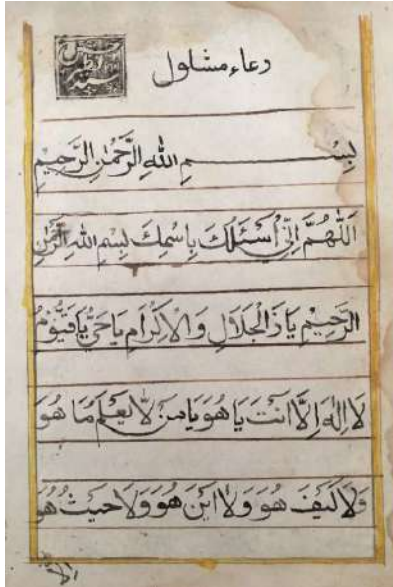 دعاء مشلول
بِسْمِ اللهِ الرَّحْمٰنِ الرَّحِيْمِ
اَللّٰهُمَّ اِنِّيْ اَسْئَلُكَ بِاسْمِكَ بِسْمِ اللهِ الرَّحْمٰنِ
الرَّحِيْمِ يَا ذَالْجَلَالِ وَالْاِكْرَامِ يَا حَيُّ يَا قَيُّوْمُ
لَا اِلٰهَ اِلَّا اَنْتَ يَا هُوَ يَا مَنْ لَا يَعْلَمُ مَا هُوَ
وَلَا كَيْفَ هُوَ وَلَا اَيْنَ هُوَ وَلَا حَيْثُ هُوَ